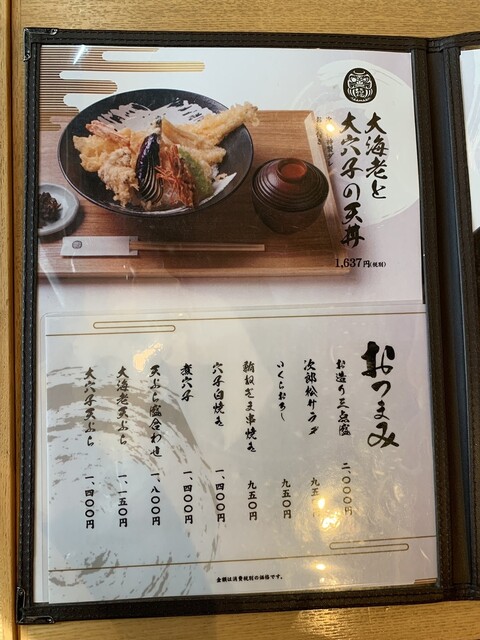 大海老と
大穴子の天丼
1,637円(税別)
おつまみ
お造り三点盛 二、〇〇〇円
次郎松サラダ 九五
いくらおろし 九五〇円
九五〇円
穴子白焼き 一、四〇〇円
煮穴子 一、四〇〇円
天ぷら盛合わせ 一、八〇〇円
大海老天ぷら 一、一五〇円
大穴子天ぷら 一、四〇〇円
金額は消費税別の価格です。